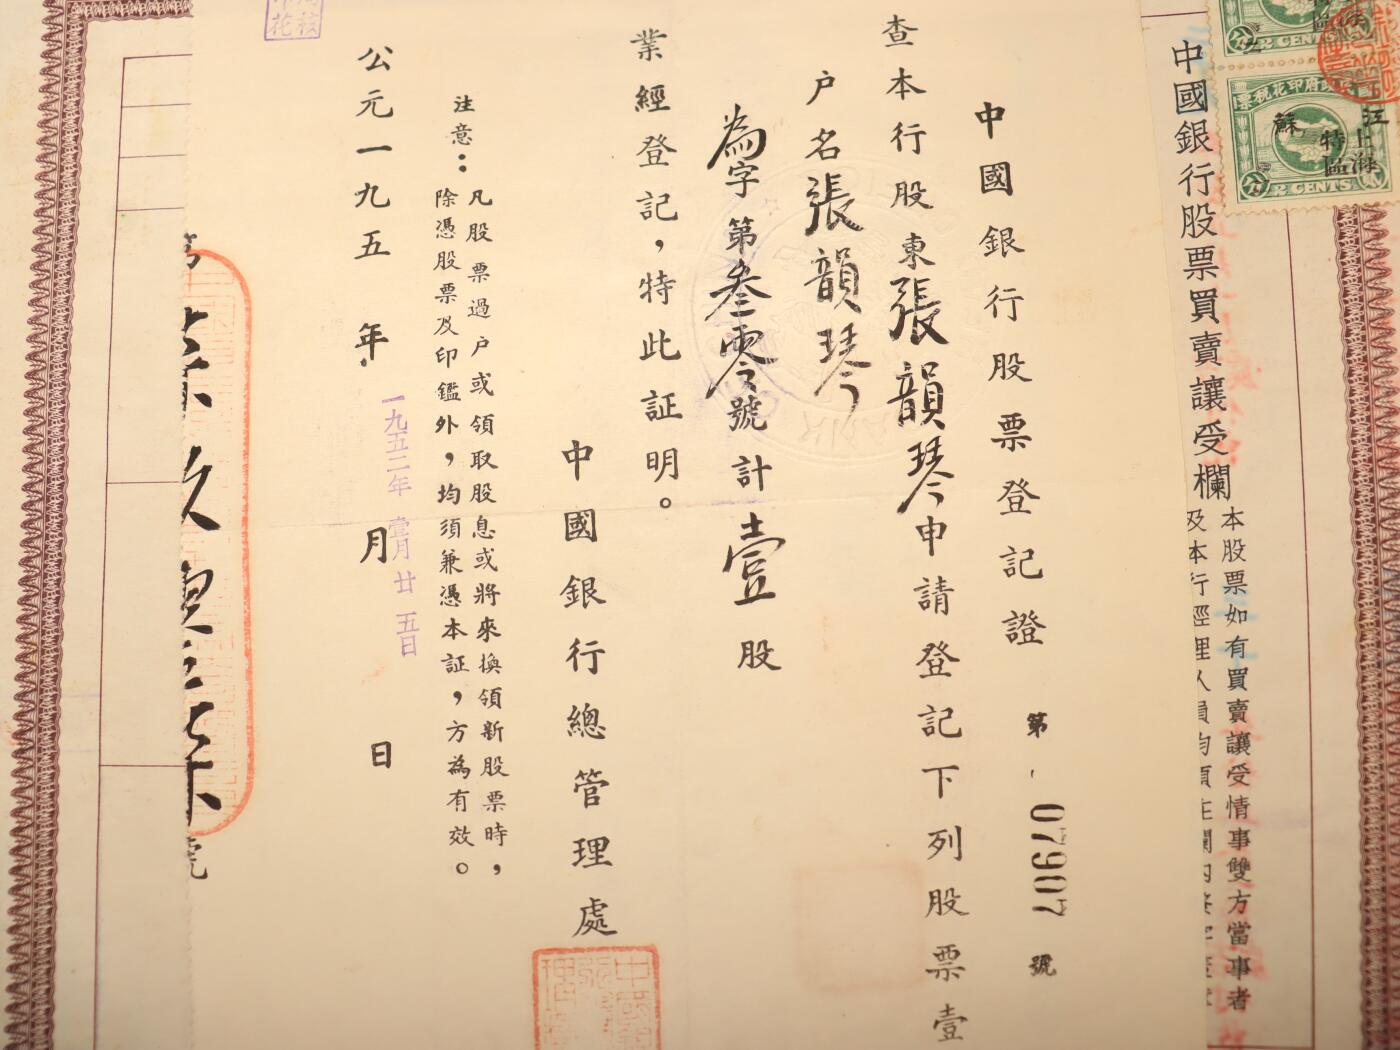 中國銀行股票買賣讓受欄
本股票如有買賣讓受情事雙方當事者
及本行經理人員均須在欄內
2 CENTS
江蘇
上海特區
2 CENTS
中國銀行股票登記證
第07907號
查本行股東張韻琴申請登記下列股票壹
户名張韻琴
為字第叁零號計壹股
業經登記，特此証明。
中國銀行總管理處
注意：凡股票過户或領取股息或將來換領新股票時，
除憑股票及印鑑外，均須兼憑本証，方為有效。
公元一九五年月日
一九五二年壹月廿五日